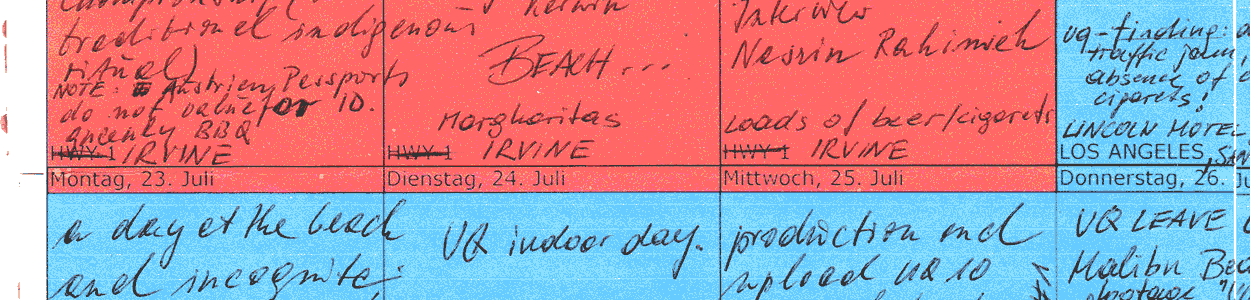 traditional indigenous
ritual)
NOTE: Austrien Passports
do not value for ID.
BBQ
HWY 1 IRVINE
BEACH...
Margharitas
HWY 1 IRVINE
Interview
Nesrin Rahimieh
Loads of beer/cigarets
HWY 1 IRVINE
UQ-finding:
traffic jam
absence of
cigarets!
LINCOLN MOTEL
LOS ANGELES, SAN
Montag, 23. Juli
Dienstag, 24. Juli
Mittwoch, 25. Juli
Donnerstag, 26. Ju
a day at the beach
and incognito
UQ indoor day.
production and
upload UQ 10
UQ LEAVE
Malibu Bea
footage